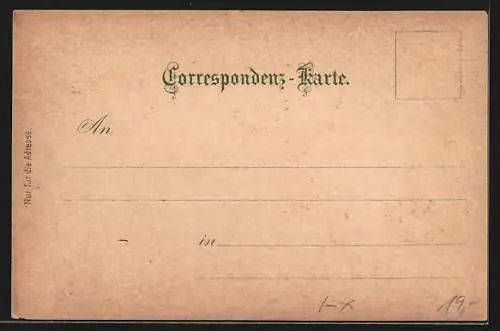 Correspondenz-Karte.
An
Nur für die Adresse.
in
1-x 19,-